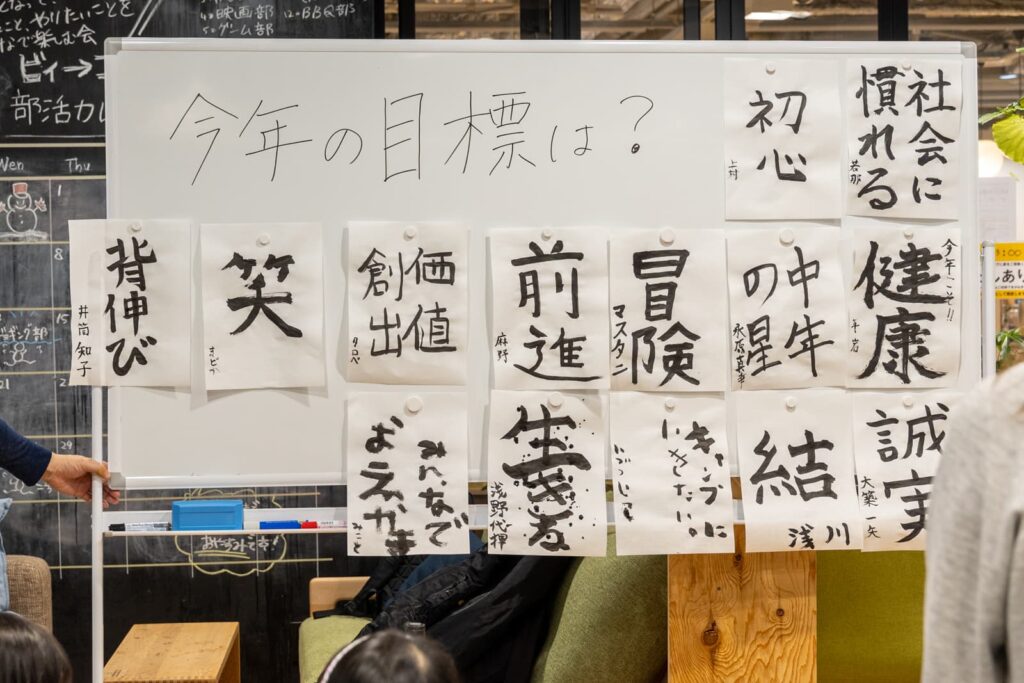 今年の目標は？
初心
上村
社会に
慣れる
若那
背伸び
井筒知子
笑
価値
創出
タロベ
前進
麻野
冒険
マスタニ
中年
の星
今年こそ!!
健康
みんなで
おえかき
みこと
生きる
浅野代揮
キャンプに
いきたい。
結
浅川
誠実
大築一矢
やりたいことを
なで楽しむ会
ビィ→
部活カレ
4.映画部 12.BBQ部
5.ゲーム部
Wen Thu
1
8
15
29
おやすみです!